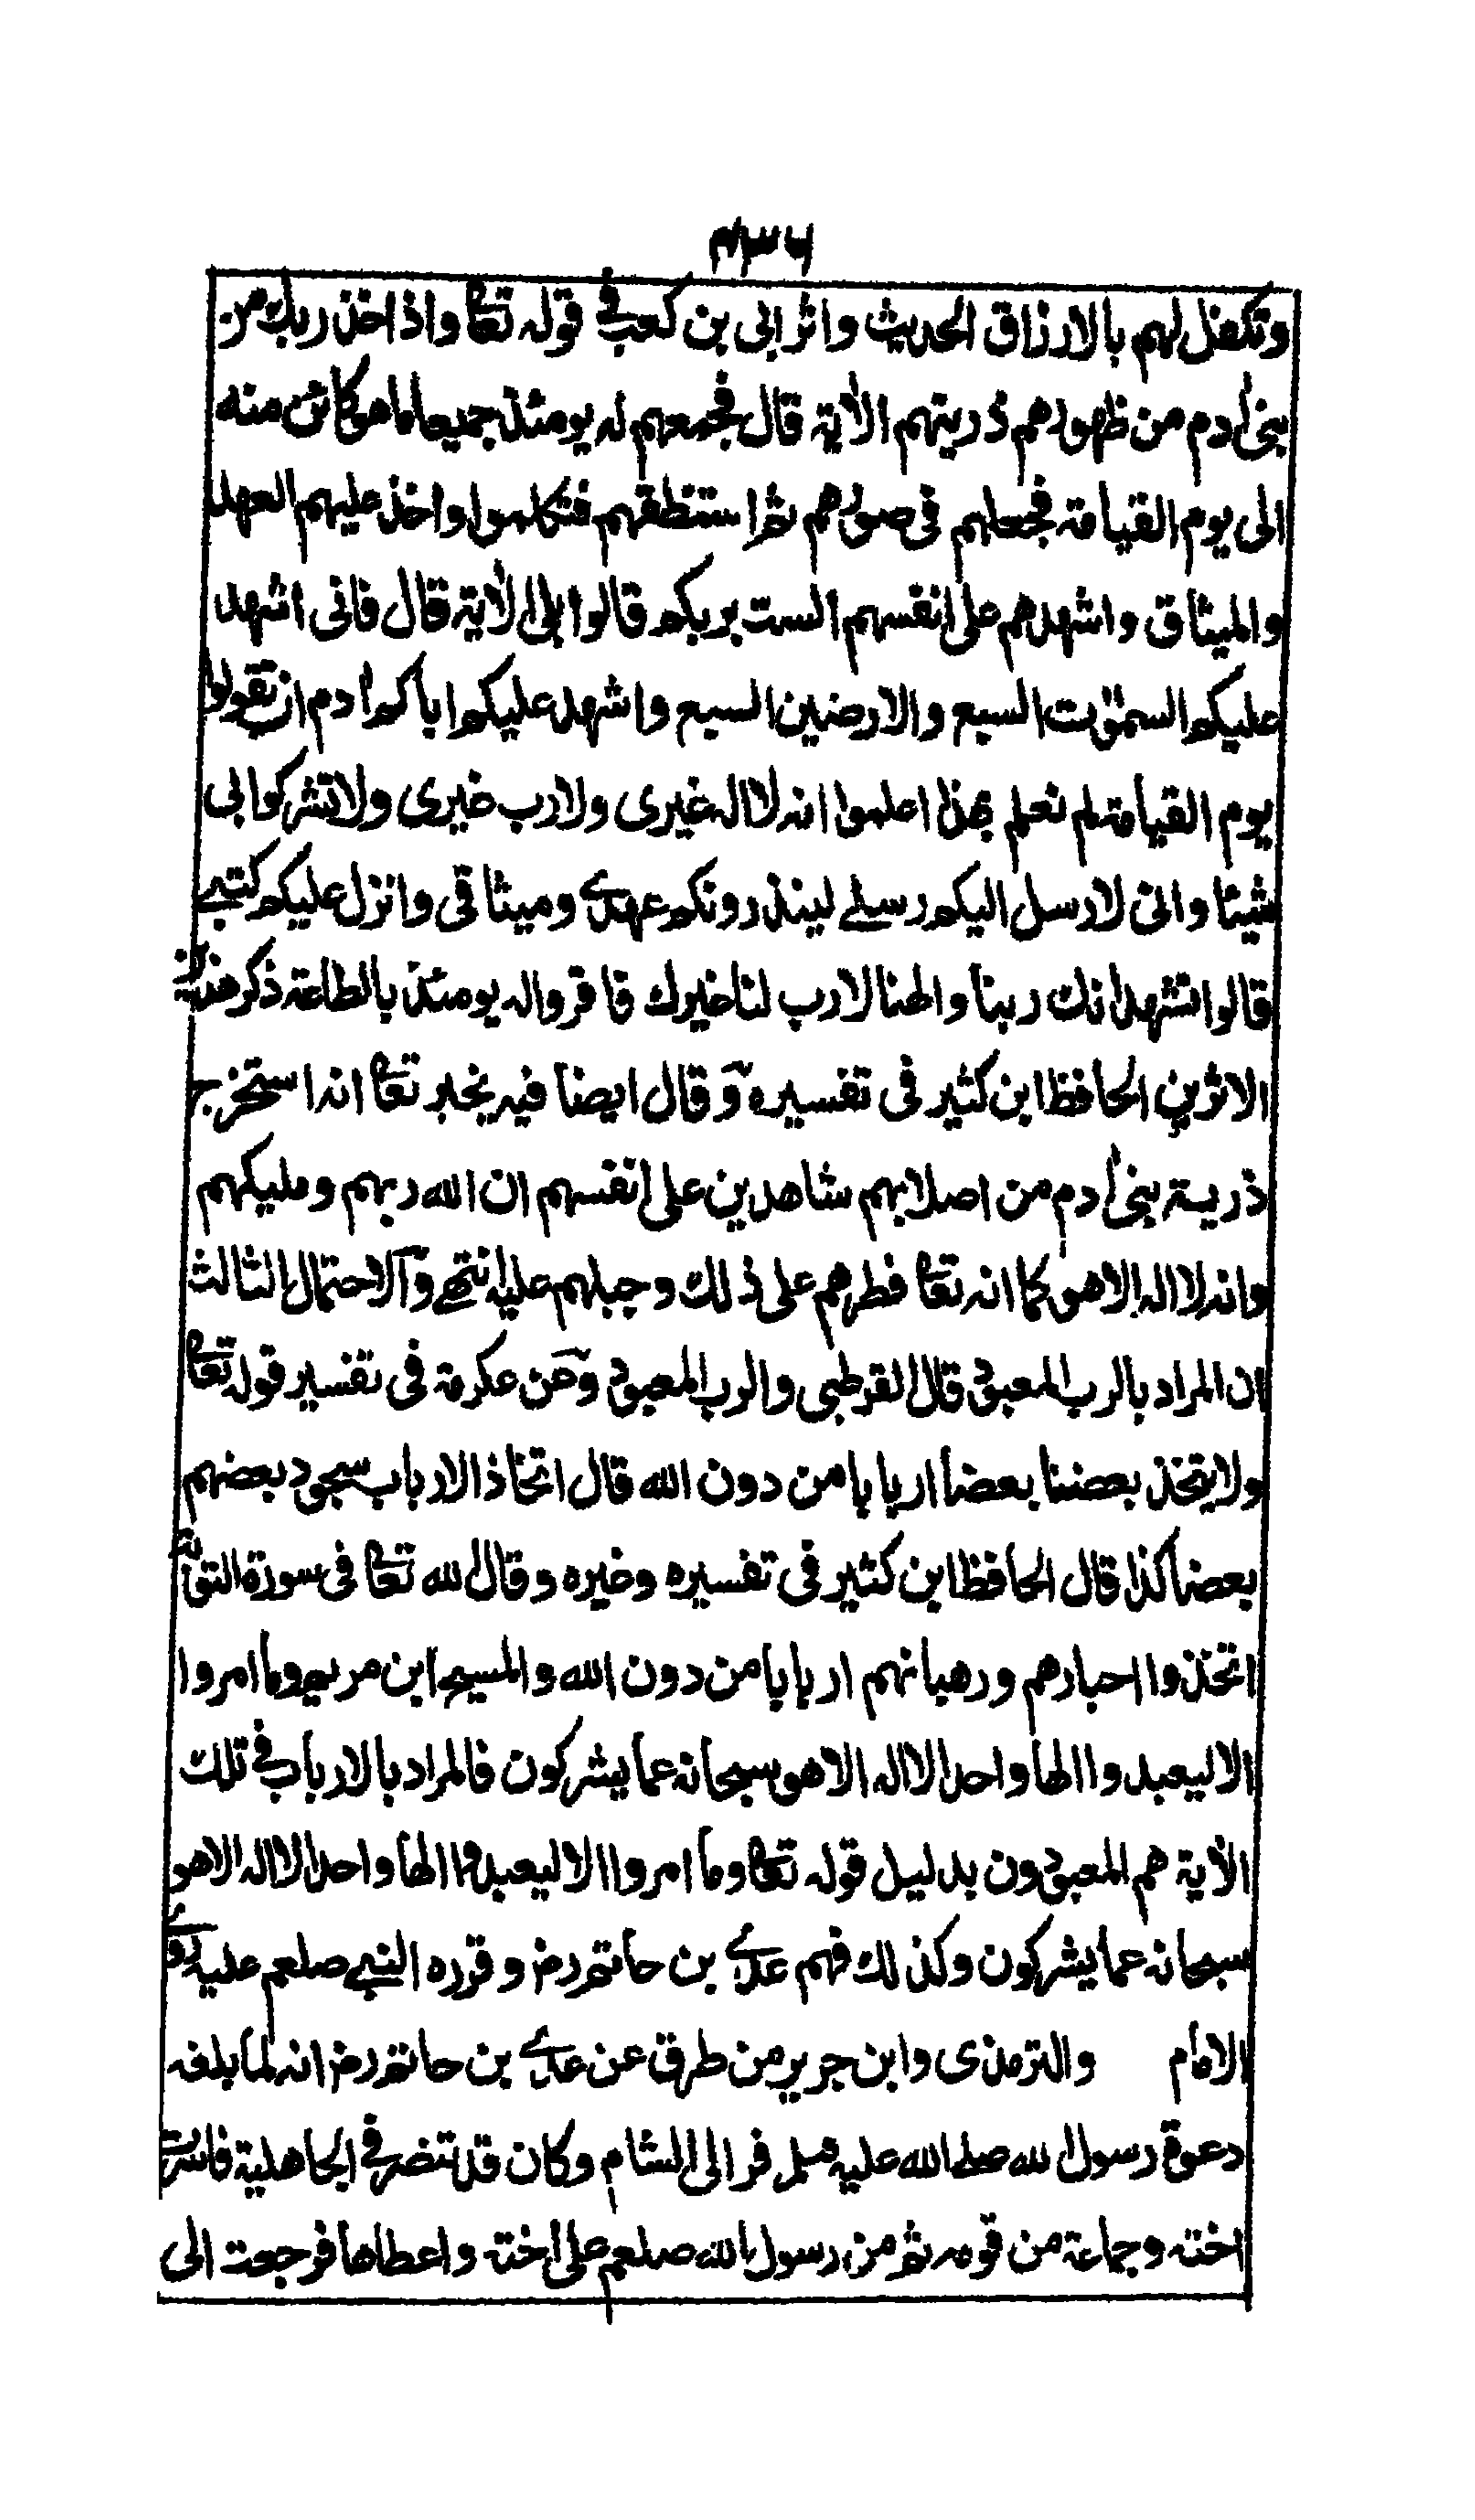 وتكفل لهم بالارزاق الحديث واثر ابى بن كعب فى قوله تعا واذ اخذ ربك من
بنى اٰدم من ظهورهم ذريتهم الاٰية قال فجمعهم له يومئذ جميعا ما هو كائن منه
الى يوم القيامة فجعلهم فى صورهم ثم استنطقهم فتكلموا واخذ عليهم العهد
والميثاق واشهدهم على انفسهم الست بربكم قالوا بلى الاٰية قال فانى اشهد
عليكم السمٰوٰت السبع والارضين السبع واشهد عليكم اباكم اٰدم ان تقولوا
يوم القيامة لم نعلم بهذا اعلموا انه لا اله غيرى ولا رب غيرى ولا تشركوا بى
شيئا وانى لارسل اليكم رسلے لينذرونكم عهدے وميثاقى وانزل عليكم كتبے
قالوا نشهد انك ربنا والهنا لا رب لنا غيرك فاقروا له يومئذ بالطاعة ذكر هذين
الاثرين الحافظ ابن كثير فى تفسيره وقال ايضا فيه يخبر تعا انه استخرج
ذرية بنى اٰدم من اصلابهم شاهدين على انفسهم ان الله ربهم ومليكهم
وانه لا اله الا هو كما انه تعا فطرهم على ذلك وجبلهم عليه انتهى والاحتمال الثالث
ان المراد بالرب المعبود قال القرطبى والرب المعبود وعن عكرمة فى تفسير قوله تعا
ولا يتخذ بعضنا بعضا اربابا من دون الله قال اتخاذ الارباب سجود بعضهم
بعضا كذا قال الحافظ ابن كثير فى تفسيره وغيره وقال الله تعا فى سورة التوبة
اتخذوا احبارهم ورهبانهم اربابا من دون الله والمسيح ابن مريم وما امروا
الا ليعبدوا الها واحدا لا اله الا هو سبحانه عما يشركون فالمراد بالارباب فى تلك
الاٰية هم المعبودون بدليل قوله تعا وما امروا الا ليعبدوا الها واحدا لا اله الا هو
سبحانه عما يشركون وكذلك فهم عدے بن حاتم رض وقرره النبے صلعم عليه
الامام والترمذى وابن جرير من طرق عن عدے بن حاتم رض انه لما بلغه
دعوة رسول الله صلے الله عليه وسلم فر الى الشام وكان قد تنصر فى الجاهلية فاسرت
اخته وجماعة من قومه ثم من رسول الله صلعم على اخته واعطاها فرجعت الى